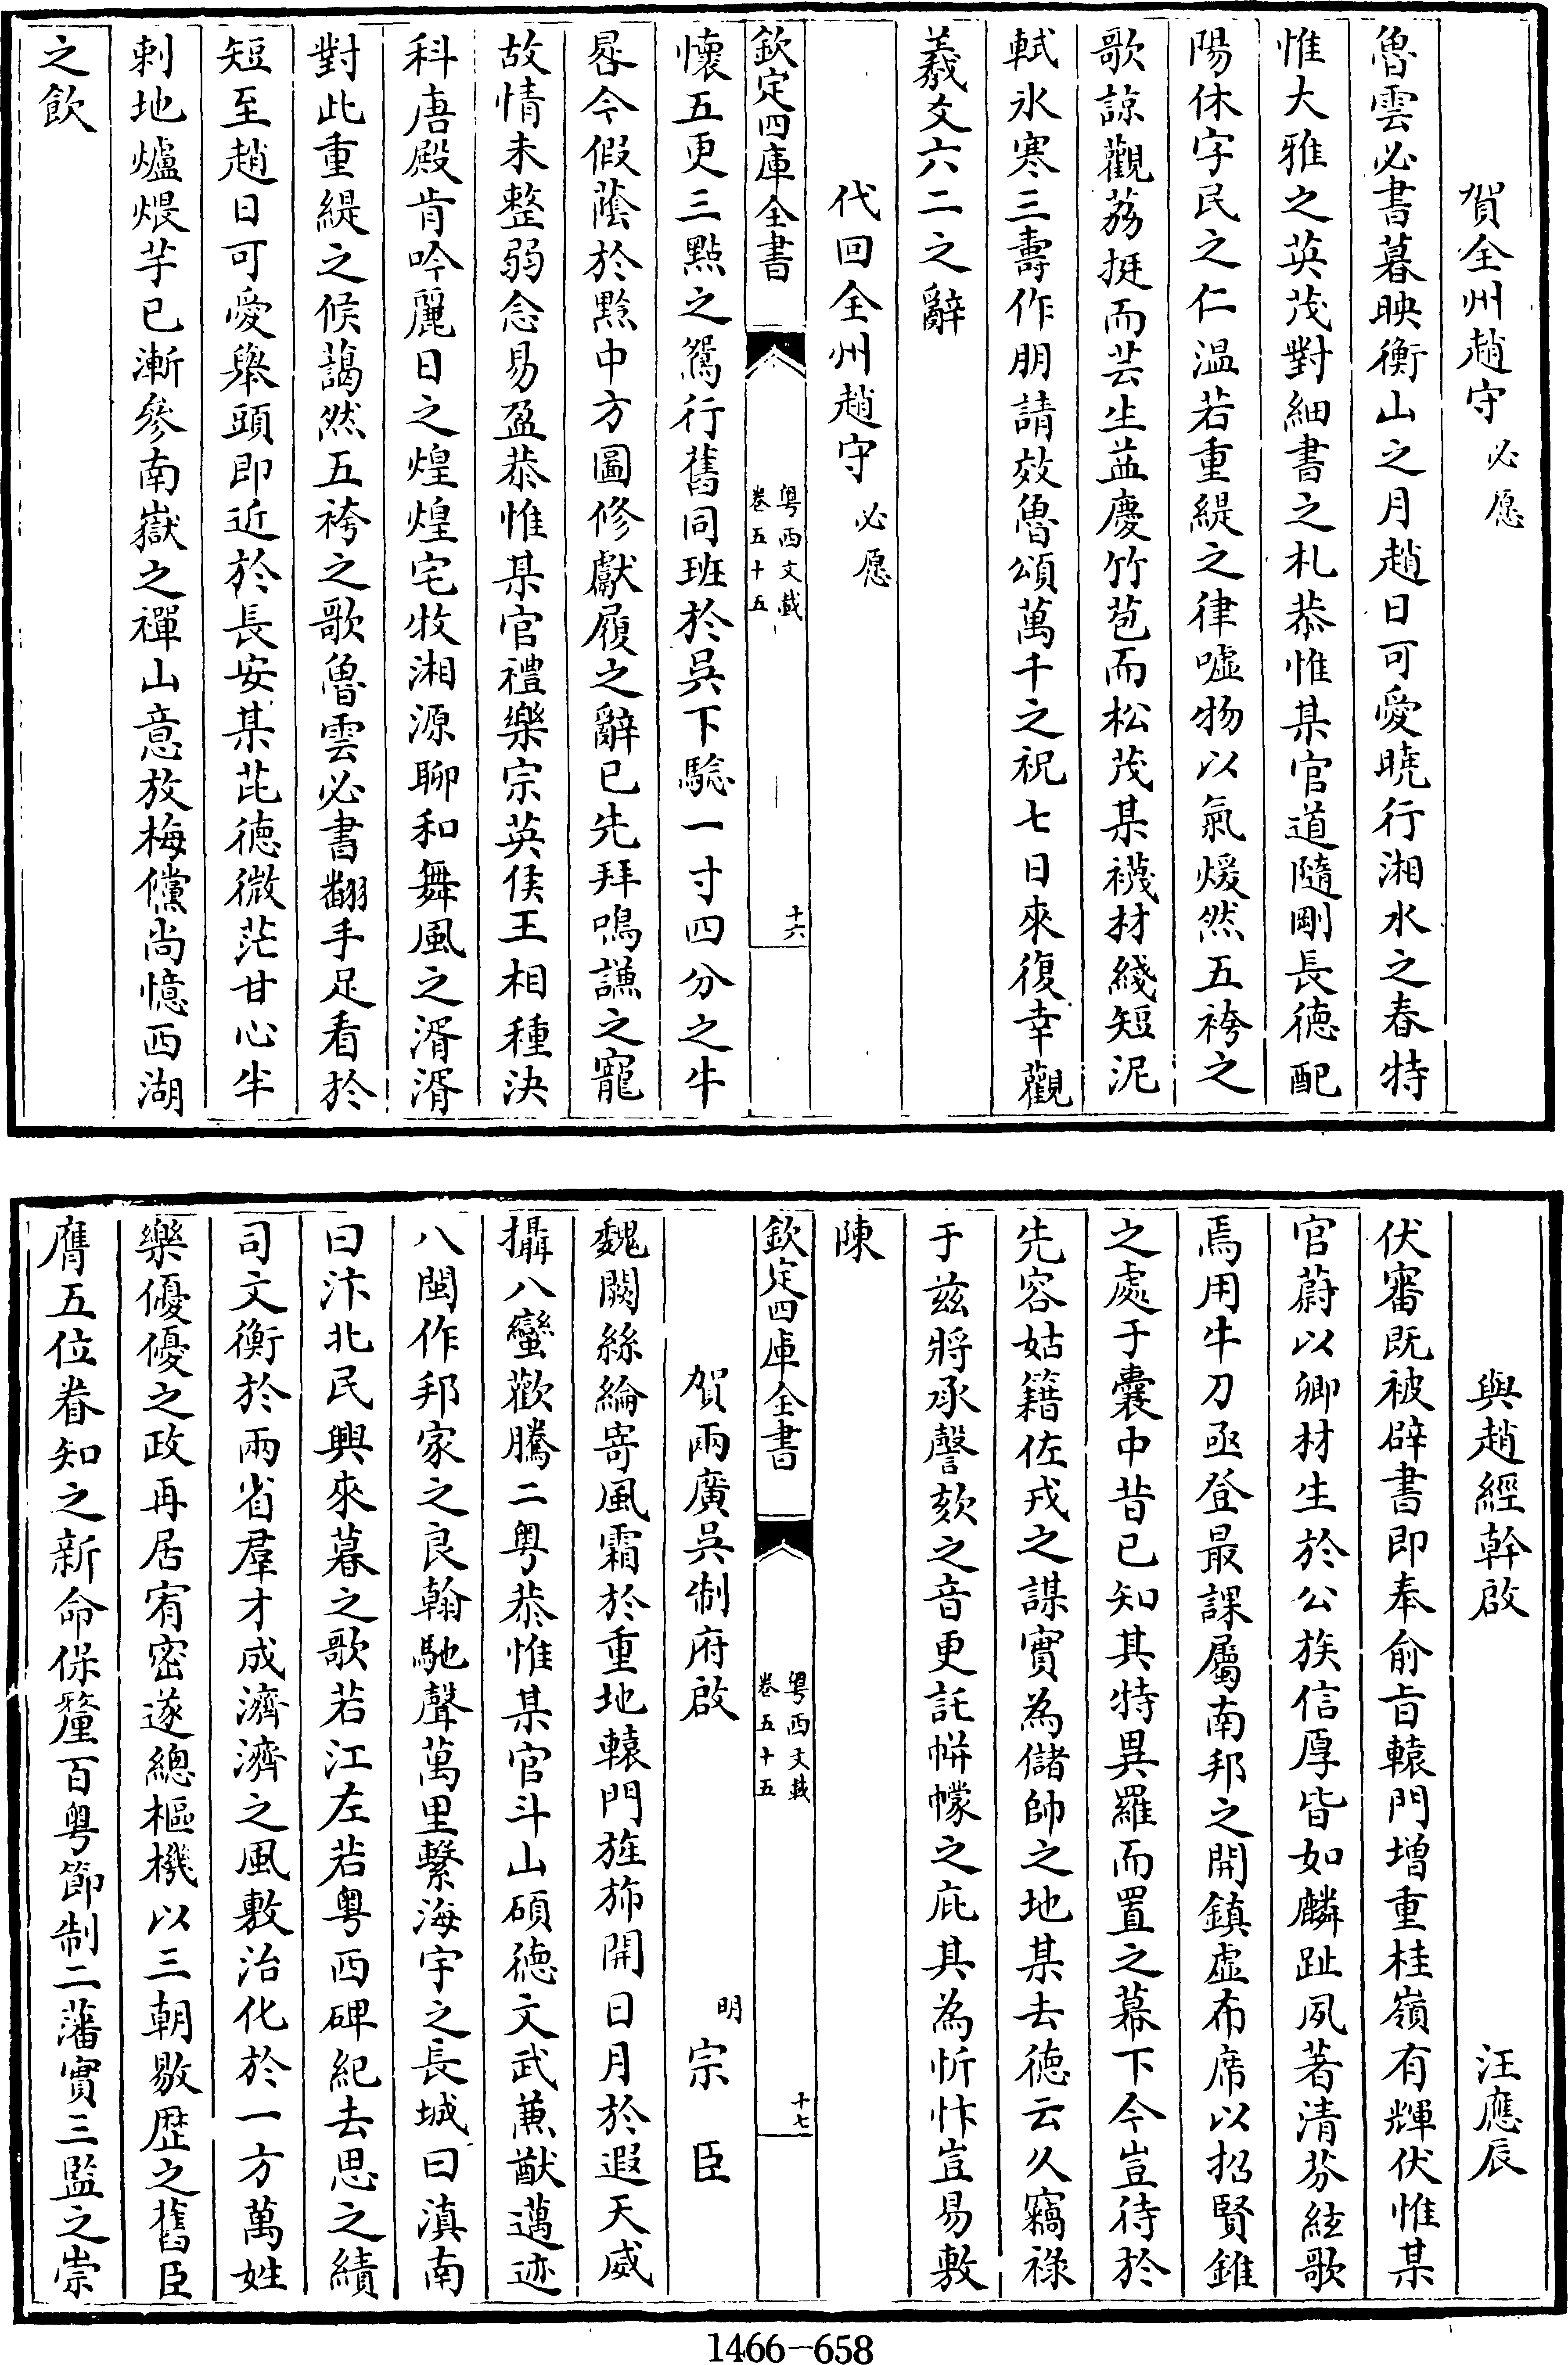 賀全州趙守必愿
魯雲必書暮映衡山之月趙日可愛曉行湘水之春特
惟大雅之英茂對細書之札恭惟某官道隨剛長德配
陽休字民之仁温若重緹之律噓物以氣煖然五袴之
歌諒觀荔挺而芸生益慶竹苞而松茂某襪材綫短泥
軾氷寒三壽作朋請效魯頌萬千之祝七日來復幸觀
羲爻六二之辭
代回全州趙守必愿
欽定四庫全書
粤西文載
卷五十五
十六
懷五更三點之鴛行舊同班於吳下驗一寸四分之牛
晷今假蔭於黔中方圖修獻履之辭已先拜鳴謙之寵
故情未整弱念易盈恭惟某官禮樂宗英侯王相種決
科唐殿肯吟麗日之煌煌宅牧湘源聊和舞風之湑湑
對此重緹之候藹然五袴之歌魯雲必書翻手足看於
短至趙日可愛舉頭即近於長安某芘德微茫甘心半
刺地爐煨芋已漸參南嶽之禪山意放梅儻尚憶西湖
之飲
與趙經幹啟
汪應辰
伏審既被辟書即奉俞旨轅門增重桂嶺有輝伏惟某
官蔚以卿材生於公族信厚皆如麟趾夙著清芬絃歌
焉用牛刀亟登最課屬南邦之開鎮虛布席以招賢錐
之處于囊中昔已知其特異羅而置之幕下今豈待於
先容姑籍佐戎之謀實為儲帥之地某去德云久竊祿
于兹將承謦欬之音更託帡幪之庇其為忻忭豈易敷
陳
欽定四庫全書
粤西文載
卷五十五
十七
賀兩廣吳制府啟
明宗臣
魏闕絲綸寄風霜於重地轅門旌斾開日月於遐天威
攝八蠻歡騰二粤恭惟某官斗山碩德文武兼猷邁迹
八閩作邦家之良翰馳聲萬里繫海宇之長城曰滇南
曰汴北民興來暮之歌若江左若粤西碑紀去思之績
司文衡於兩省羣才成濟濟之風敷治化於一方萬姓
樂優優之政再居宥密遂總樞機以三朝敭歷之舊臣
膺五位眷知之新命保釐百粤節制二藩實三監之崇
1466-658